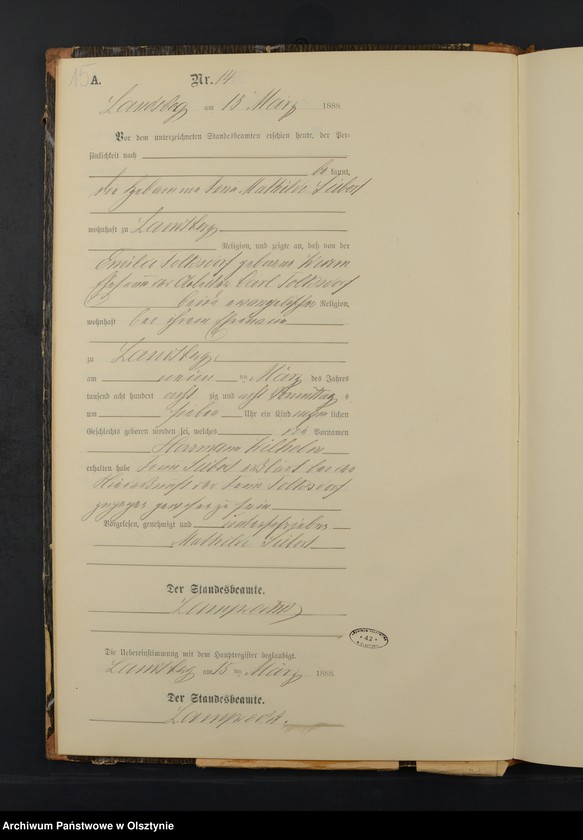 15
A.
Nr. 14
Landsberg am 13 März 1888.
Vor dem unterzeichneten Standesbeamten erschien heute, der Per-
sönlichkeit nach
be kannt,
die Hebamme Frau Mathilde Siebert
wohnhaft zu Landsberg
Religion, und zeigte an, daß von der
Emilie geborene
Ehefrau des Arbeiter Carl
beide evangelischer Religion,
wohnhaft bei ihrem Ehemann
zu Landsberg,
am neun ten März des Jahres
tausend acht hundert acht zig und acht Vormittag s
um sieben Uhr ein Kind männ lichen
Geschlechts geboren worden sei, welches den Vornamen
Hermann Wilhelm
erhalten habe Frau Siebert erklärt bei der
Niederkunft der Frau
zugegen gewesen zu sein
Vorgelesen, genehmigt und unterschrieben
Mathilde Siebert
Der Standesbeamte.
Lamprecht
42
Die Uebereinstimmung mit dem Hauptregister beglaubigt.
Landsberg am 15 ten März 1888.
Der Standesbeamte.
Lamprecht.
Archiwum Państwowe w Olsztynie